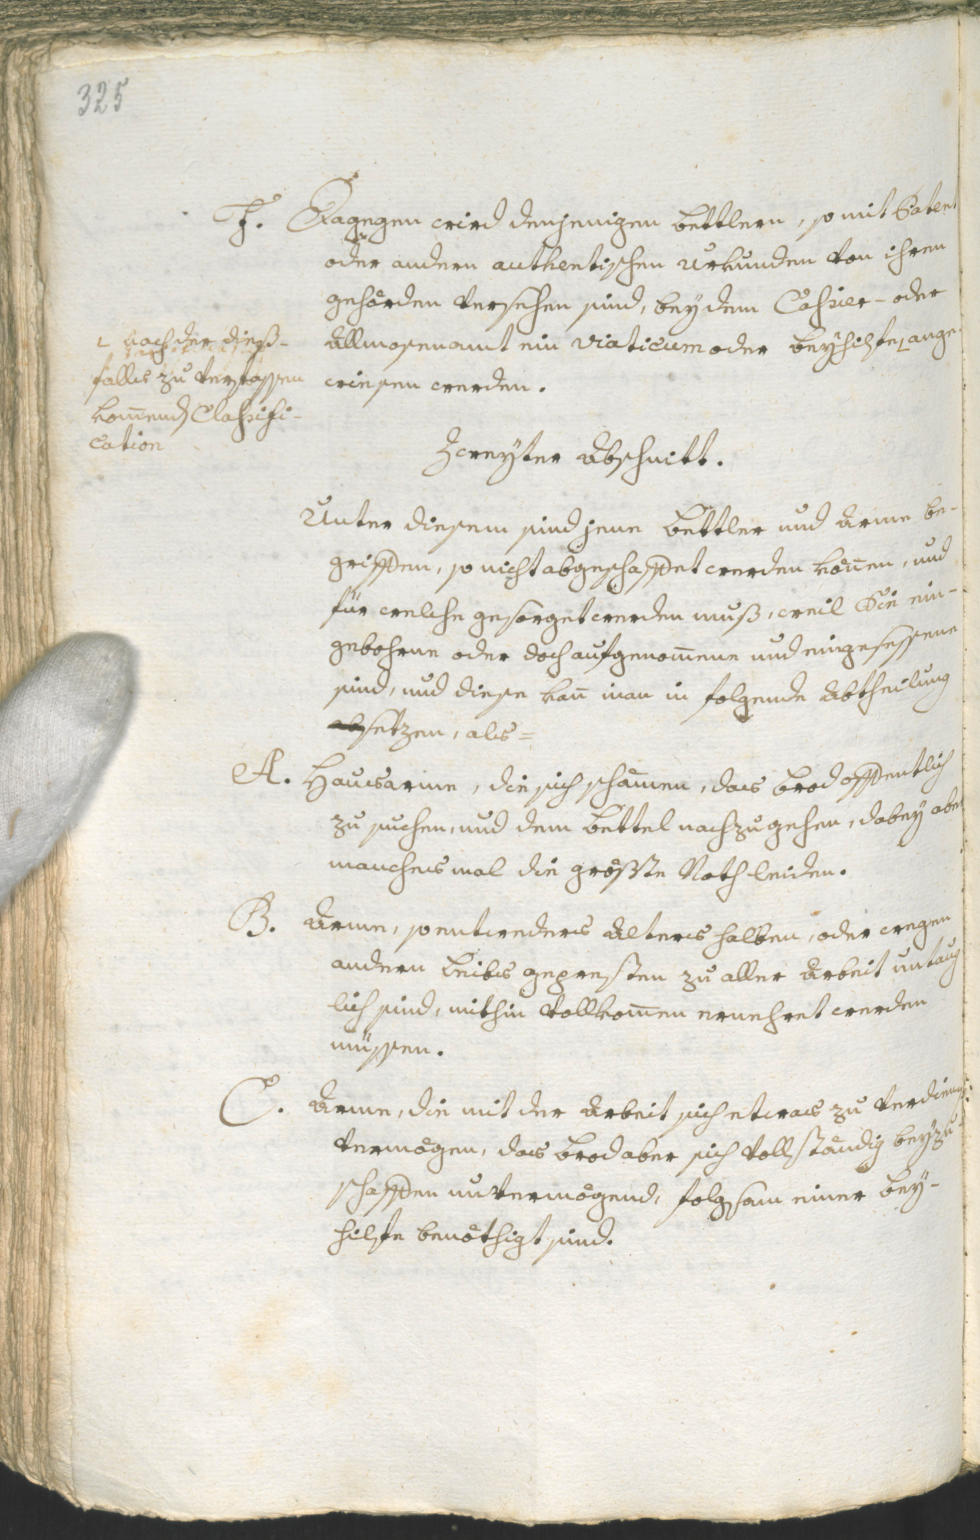 325
F. Dagegen wird denjenigen Bettlern, so mit Patent
oder andern authentischen Urkunden von ihren
gehörden versehen sind, bey dem Cassier- oder
Allmosenamt ein viaticum oder Beyhilfe ⌊ ange-
wiesen werden.
⌊ nach der dieß-
falls zu verfassen
kom̄end Classifi-
cation
Zweyter Abschnitt.
Unter diesem sind jene Bettler und Arme be-
griffen, so nicht abgeschaffet werden kön̄en, und
für welche gesorget werden muß, weil Sie ein-
gebohrne oder doch aufgenom̄ene und eingesessene
sind, und diese kan̄ man in folgende Abtheilung
absetzen, als=
A. Hausarme, die sich schämen, das Brod öffentlich
zu suchen, und dem Bettel nachzugehen, dabey aber
manchesmal die größte Noth leiden.
B. Arme, so entweders Alters halben, oder wegen
andern Leibs gepresten zu aller Arbeit untaug
lich sind, mithin vollkom̄en ernehret werden
müssen.
C. Arme, die mit der Arbeit sich etwas zu verdienen
vermögen, das Brod aber sich vollständig beyzu-
schaffen unvermögend, folgsam einer Bey-
hilfe benöthigt sind.